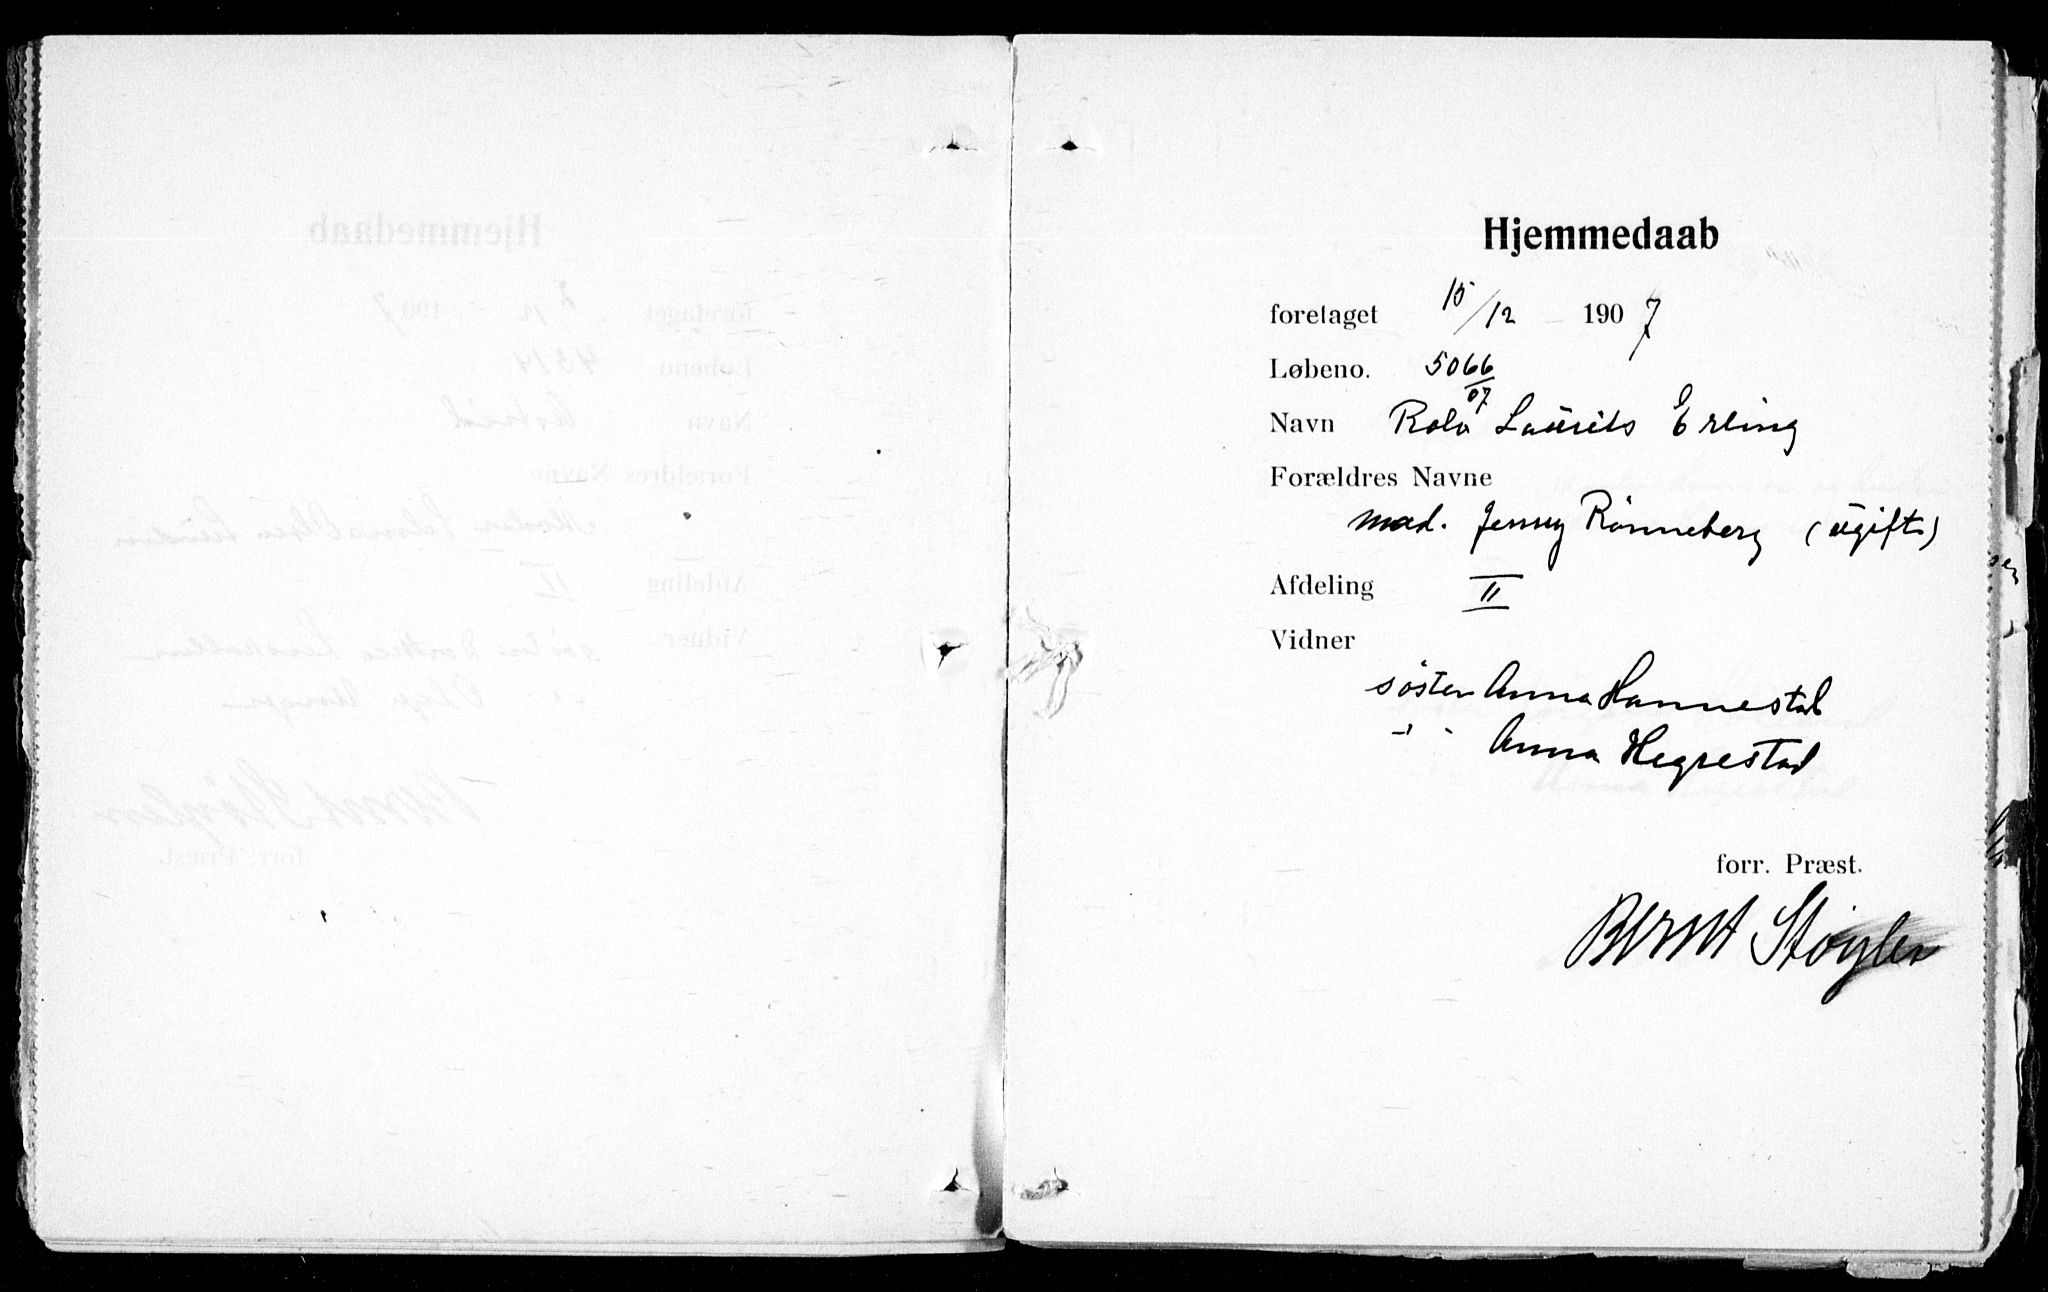 Hjemmedaab
foretaget 15/12 - 1907
Løbeno. 5066/07
Navn Rolv Laurits Erling
Forældres Navne
mod. Jenny Rønneberg (ugift)
Afdeling II
Vidner
søster Anna Hannestad
-"- Anna Hegrestad
forr. Præst.
Bernt Støylen